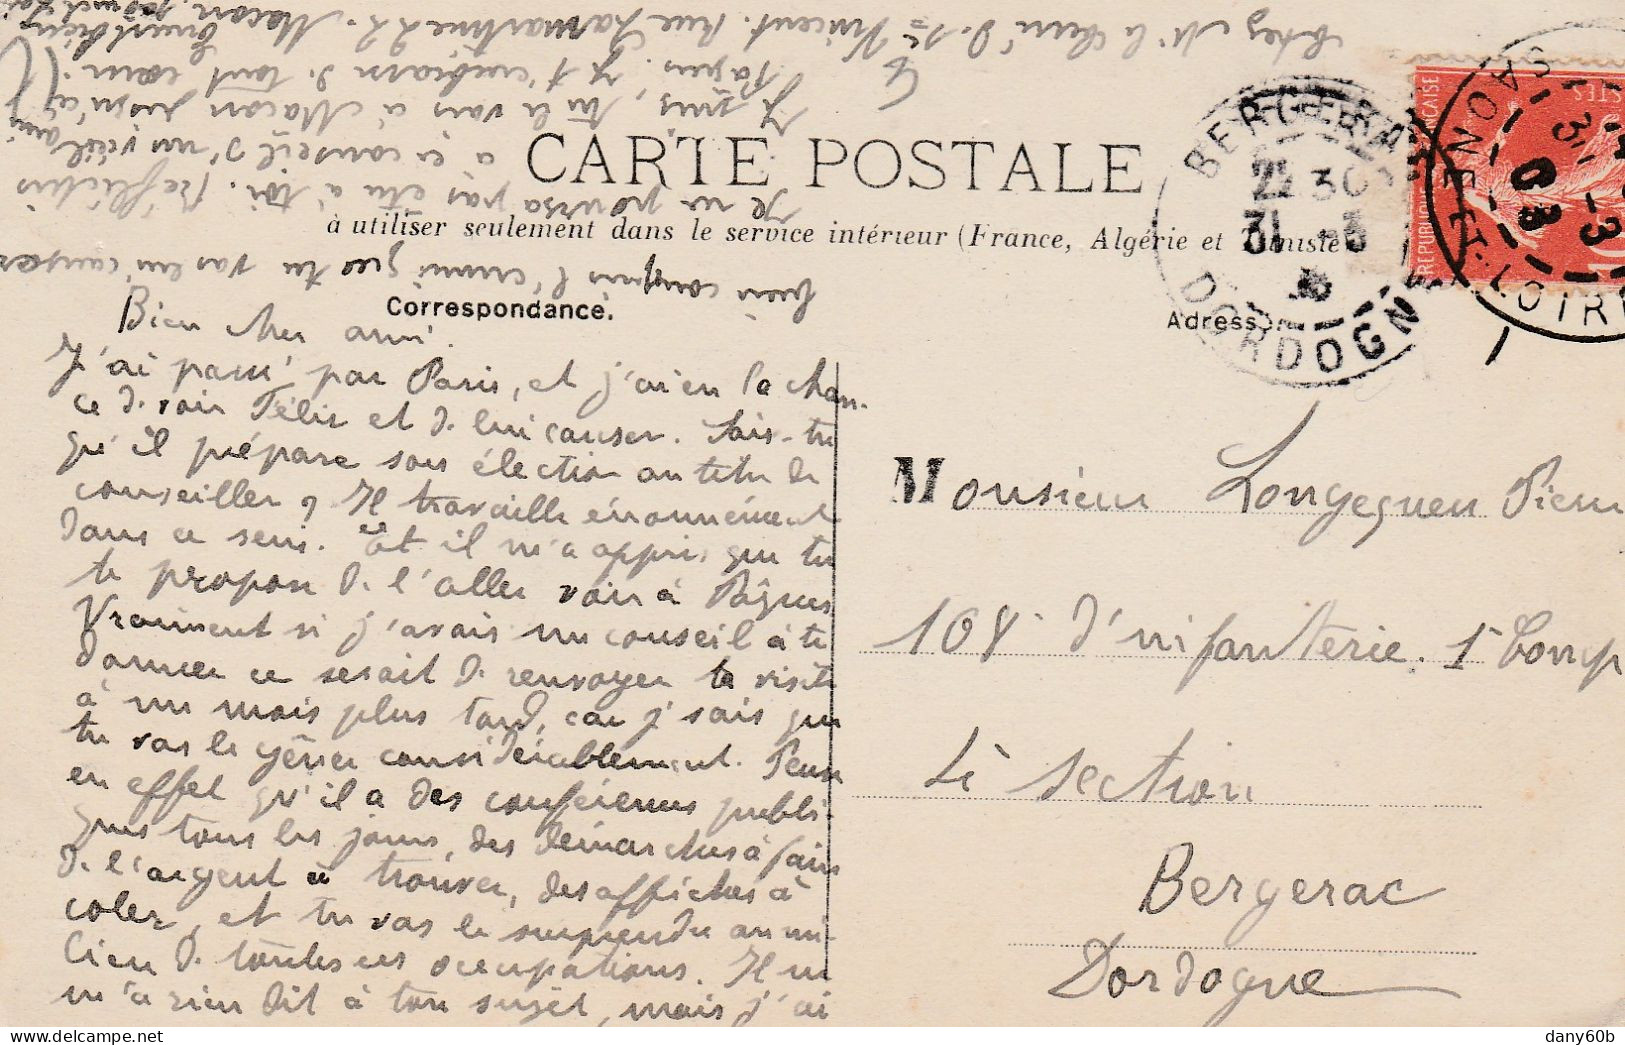 CARTE POSTALE
à utiliser seulement dans le service intérieur (France, Algérie et Tunisie
Correspondance.
Adresse
BERGERAC
31 -3
DORDOGNE
SAONE-ET-LOIRE
REPUBLIQUE FRANÇAISE
POSTES
10
Bien cher ami.
J'ai passé par Paris, et j'ai eu la chan-
ce de voir Félix et de lui causer. Sais-tu
qu'il prépare son élection au titre de
conseiller, Il travaille énormément
dans ce sens. Et il m'a appris que tu
te propose de l'aller voir à Pâques
Vraiment si j'avais un conseil à te
donner ce serait de renvoyer ta visite
à un mois plus tard, car j'sais que
tu vas le gêner considérablement. Pense
en effet qu'il a des conférences publi-
ques tous les jours, des démarches à faire
de l'argent à trouver, des affiches à
coler, et tu vas le surprendre au mi-
lieu de toutes ces occupations. Il ne
m'a rien dit à ton sujet, mais j'ai
bien compris l'ennui que tu vas lui causer
Je ne pense pas etre à toi. Réfléchis
à ce conseil d'un vieil ami
Je suis, tu le vois à Macon jusqu'à
Pâques. Je t'embrasse de tout cœur.
chez Mr le Curé de St Vincent. rue Lamartine 22. Macon
Monsieur Longequeu Pierre
108e d'infanterie. 1e Comp
4e section
Bergerac
Dordogne
dany60b